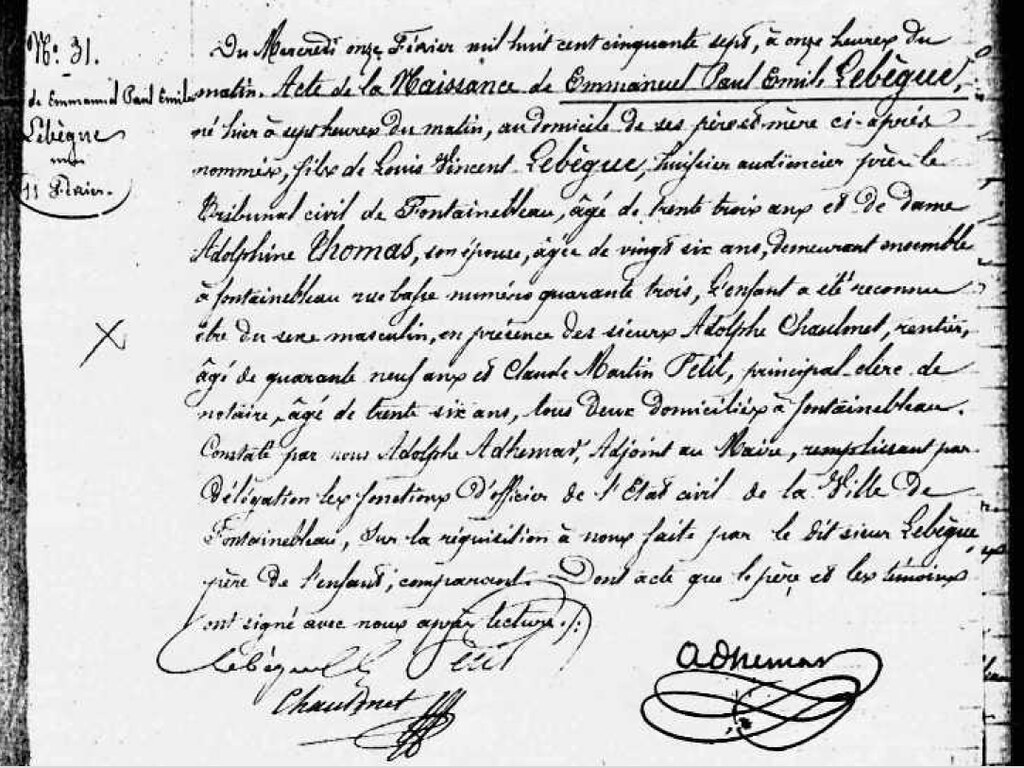 N.° 31.
de Emmanuel Paul Emile
Lebègue
11 Février.
Du Mercredi onze Février mil huit cent cinquante sept, à onze heures du
matin. Acte de la Naissance de Emmanuel Paul Emile Lebègue,
né hier à sept heures du matin, au domicile de ses père et mère ci-après
nommés, fils de Louis Vincent Lebègue, huissier audiencier près le
Tribunal civil de Fontainebleau, âgé de trente trois ans et de dame
Adolphine Thomas, son épouse, âgée de vingt six ans, demeurant ensemble
à fontainebleau rue basse numéro quarante trois, L'enfant a été reconnu
être du sexe masculin, en présence des sieurs Adolphe Chaulmet, rentier,
âgé de quarante neuf ans et Claude Martin Petit, principal clerc de
notaire, âgé de trente six ans, tous deux domiciliés à fontainebleau.
Constaté par nous Adolphe Adhemar, Adjoint au Maire, remplissant par
délégation les fonctions d'officier de l'Etat civil de la Ville de
Fontainebleau, Sur la réquisition à nous faite par le dit sieur Lebègue,
père de l'enfant, comparant. Dont acte que le père et les témoins
ont signé avec nous après lecture./:
Lebègue Petit
adhemar
Chaulmet